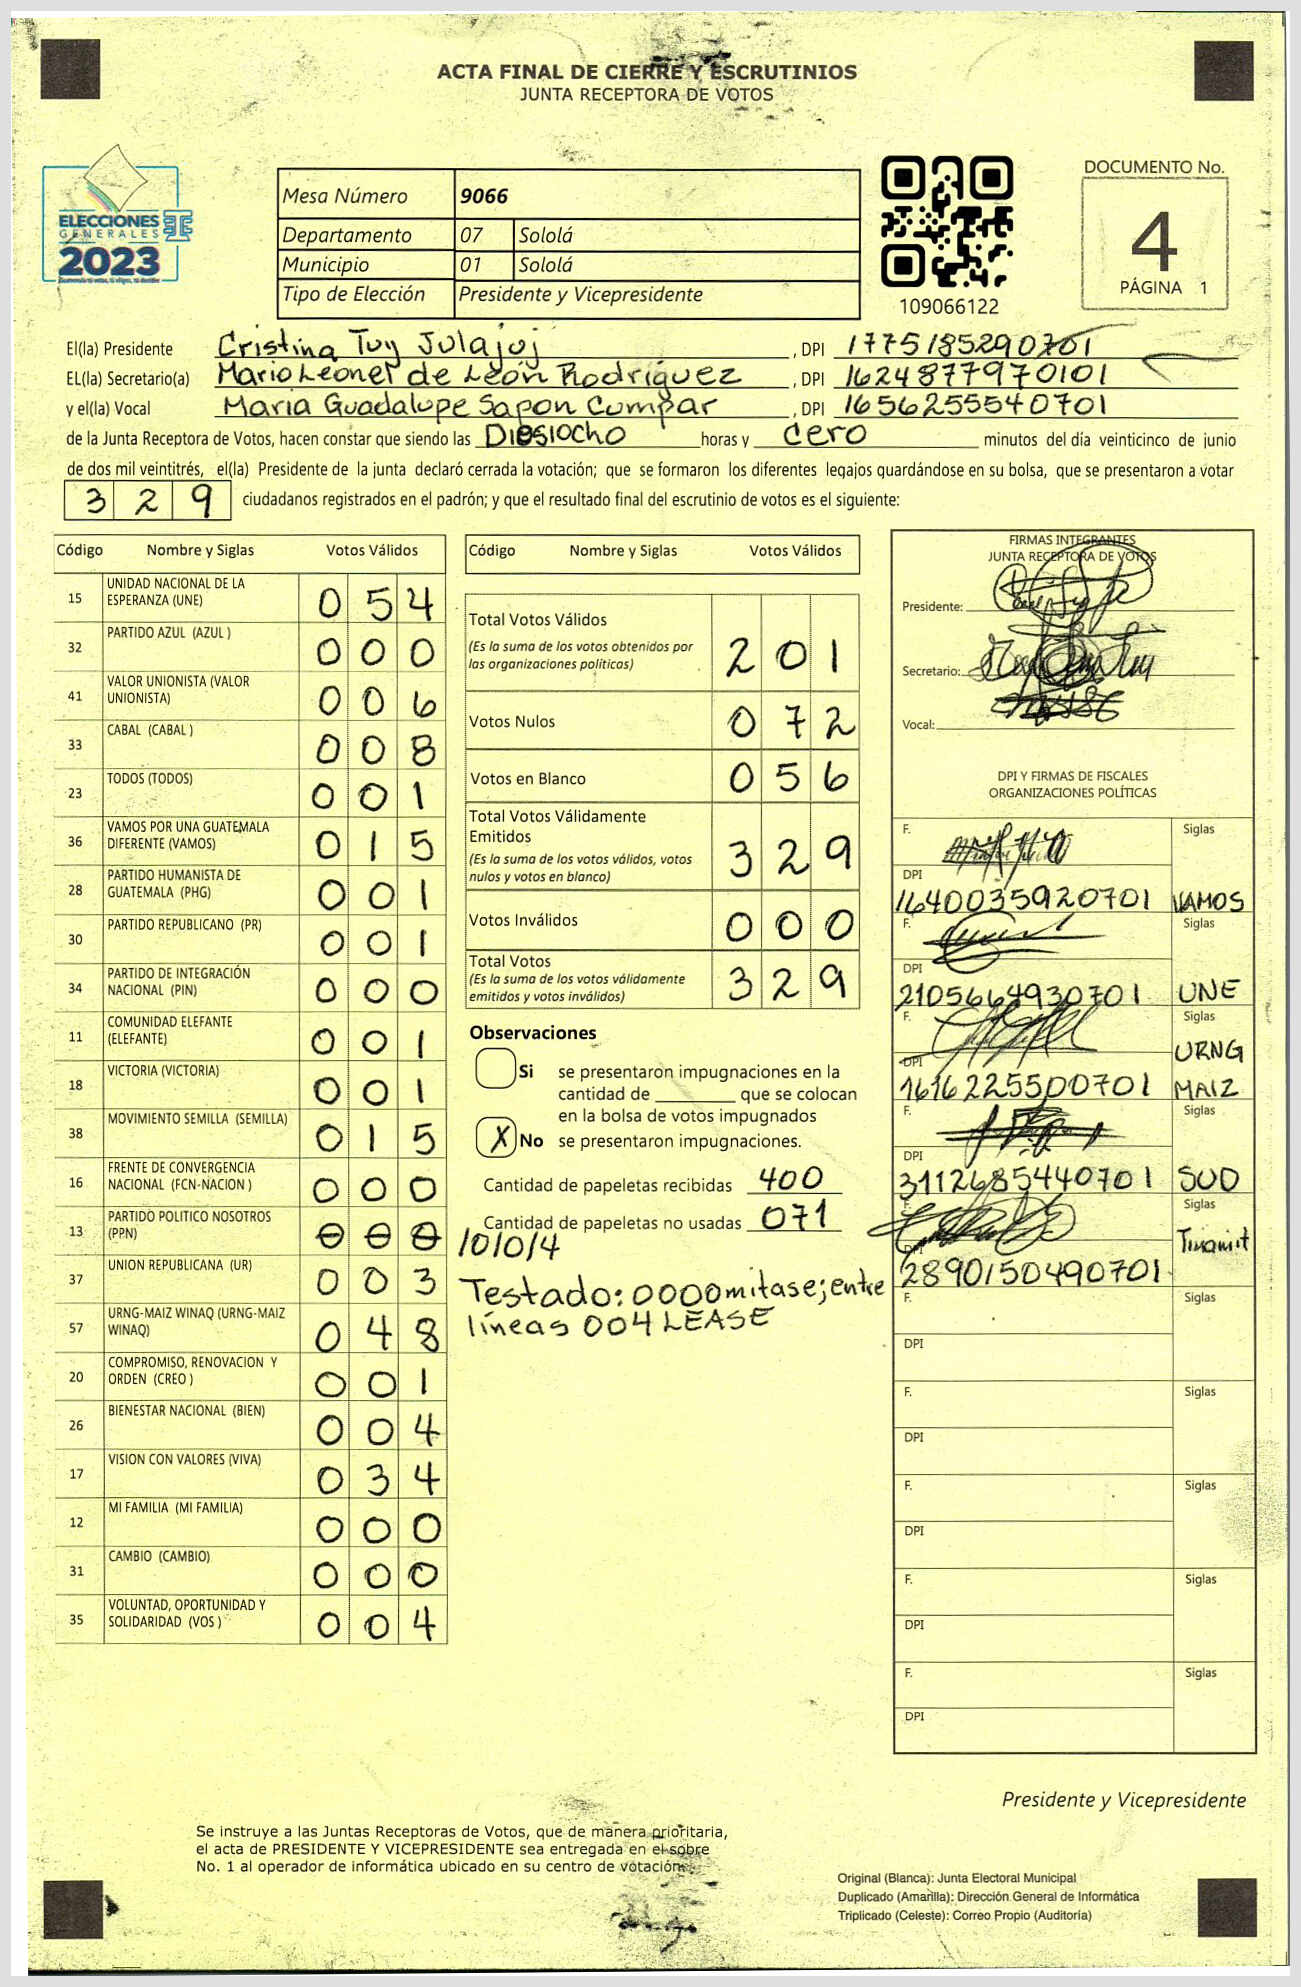 ACTA FINAL DE CIERRE Y ESCRUTINIOS
JUNTA RECEPTORA DE VOTOS
ELECCIONES
GENERALES
2023
Mesa Número 9066
Departamento 07 Sololá
Municipio 01 Sololá
Tipo de Elección Presidente y Vicepresidente
109066122
DOCUMENTO No.
4
PÁGINA 1
El(la) Presidente Cristina Tuy Julajuj, DPI 1775185290701
EL(la) Secretario(a) Mario Leonel de León Rodríguez, DPI 1624877970101
y el(la) Vocal Maria Guadalupe Sapon Cumpar, DPI 1656255540701
de la Junta Receptora de Votos, hacen constar que siendo las Diesiocho horas y cero minutos del día veinticinco de junio
de dos mil veintitrés, el(la) Presidente de la junta declaró cerrada la votación; que se formaron los diferentes legajos guardándose en su bolsa, que se presentaron a votar
3 2 9 ciudadanos registrados en el padrón; y que el resultado final del escrutinio de votos es el siguiente:
Código Nombre y Siglas Votos Válidos
15 UNIDAD NACIONAL DE LA
ESPERANZA (UNE) 0 5 4
32 PARTIDO AZUL (AZUL ) 0 0 0
41 VALOR UNIONISTA (VALOR
UNIONISTA) 0 0 6
33 CABAL (CABAL ) 0 0 8
23 TODOS (TODOS) 0 0 1
36 VAMOS POR UNA GUATEMALA
DIFERENTE (VAMOS) 0 1 5
28 PARTIDO HUMANISTA DE
GUATEMALA (PHG) 0 0 1
30 PARTIDO REPUBLICANO (PR) 0 0 1
34 PARTIDO DE INTEGRACIÓN
NACIONAL (PIN) 0 0 0
11 COMUNIDAD ELEFANTE
(ELEFANTE) 0 0 1
18 VICTORIA (VICTORIA) 0 0 1
38 MOVIMIENTO SEMILLA (SEMILLA) 0 1 5
16 FRENTE DE CONVERGENCIA
NACIONAL (FCN-NACION ) 0 0 0
13 PARTIDO POLITICO NOSOTROS
(PPN) 0 0 0 /0/0/4
37 UNION REPUBLICANA (UR) 0 0 3
57 URNG-MAIZ WINAQ (URNG-MAIZ
WINAQ) 0 4 8
20 COMPROMISO, RENOVACION Y
ORDEN (CREO ) 0 0 1
26 BIENESTAR NACIONAL (BIEN) 0 0 4
17 VISION CON VALORES (VIVA) 0 3 4
12 MI FAMILIA (MI FAMILIA) 0 0 0
31 CAMBIO (CAMBIO) 0 0 0
35 VOLUNTAD, OPORTUNIDAD Y
SOLIDARIDAD (VOS ) 0 0 4
Código Nombre y Siglas Votos Válidos
Total Votos Válidos
(Es la suma de los votos obtenidos por
las organizaciones políticas) 2 0 1
Votos Nulos 0 7 2
Votos en Blanco 0 5 6
Total Votos Válidamente
Emitidos
(Es la suma de los votos válidos, votos
nulos y votos en blanco) 3 2 9
Votos Inválidos 0 0 0
Total Votos
(Es la suma de los votos válidamente
emitidos y votos inválidos) 3 2 9
Observaciones
Si se presentaron impugnaciones en la
cantidad de ________ que se colocan
en la bolsa de votos impugnados
X No se presentaron impugnaciones.
Cantidad de papeletas recibidas 400
Cantidad de papeletas no usadas 071
Testado: 0000mitase; entre
líneas 004 LEASE
FIRMAS INTEGRANTES
JUNTA RECEPTORA DE VOTOS
Presidente:
Secretario:
Vocal:
DPI Y FIRMAS DE FISCALES
ORGANIZACIONES POLÍTICAS
F. Siglas
DPI
1640035920701 VAMOS
F. Siglas
DPI
2105664930701 UNE
F. Siglas
DPI URNG
1616225500701 MAIZ
F. Siglas
DPI
3112685440701 SUD
F. Siglas
DPI Tinamit
2890150490701
F. Siglas
DPI
F. Siglas
DPI
F. Siglas
DPI
F. Siglas
DPI
F. Siglas
DPI
Presidente y Vicepresidente
Se instruye a las Juntas Receptoras de Votos, que de manera prioritaria,
el acta de PRESIDENTE Y VICEPRESIDENTE sea entregada en el sobre
No. 1 al operador de informática ubicado en su centro de votación.
Original (Blanca): Junta Electoral Municipal
Duplicado (Amarilla): Dirección General de Informática
Triplicado (Celeste): Correo Propio (Auditoría)